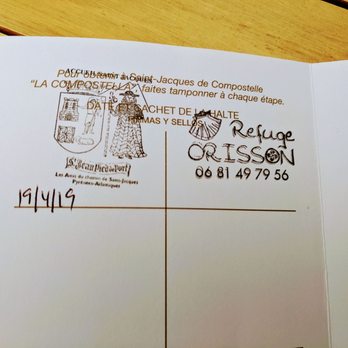 ACCUEIL SAINT JACQUES
Pour obtenir à Saint-Jacques de Compostelle
"LA COMPOSTELLA", faites tamponner à chaque étape.
DATE ET CACHET DE LA HALTE
FIRMAS Y SELLOS
Refuge
ORISSON
06 81 49 79 56
St Jean Pied de Port
Les Amis du chemin de Saint-Jacques
Pyrénées-Atlantiques
19/4/19